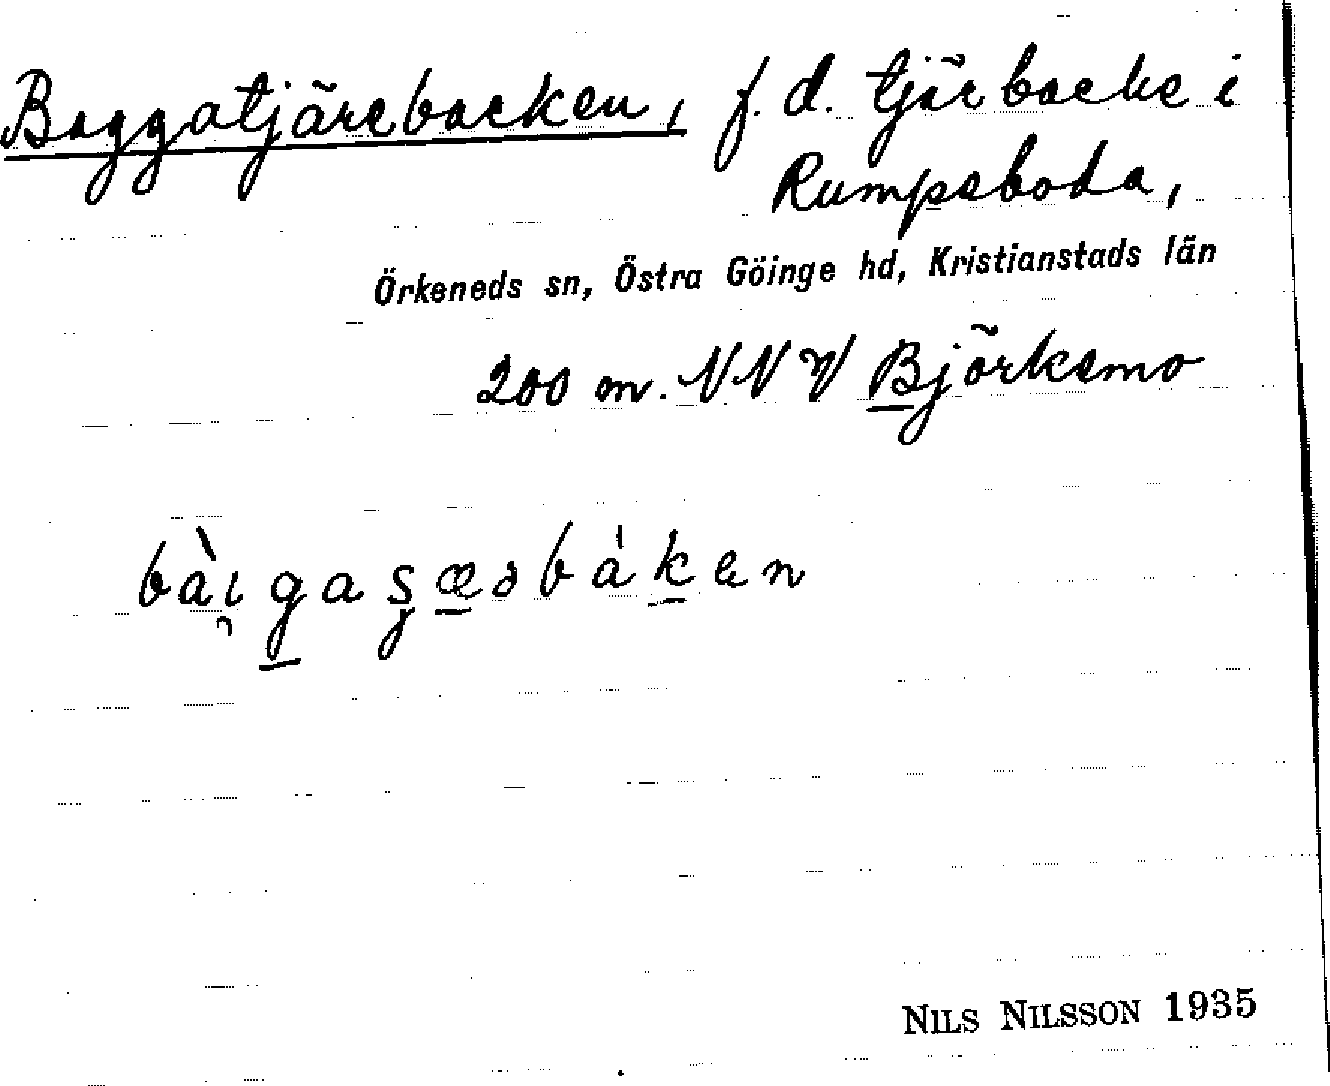 Baggatjärebacken, f. d. tjärbacke i
Rumpeboda,
Örkeneds sn, Östra Göinge hd, Kristianstads län
200 m. NNV Björkemo
bàı̯gaşæəbákən
NILS NILSSON 1935